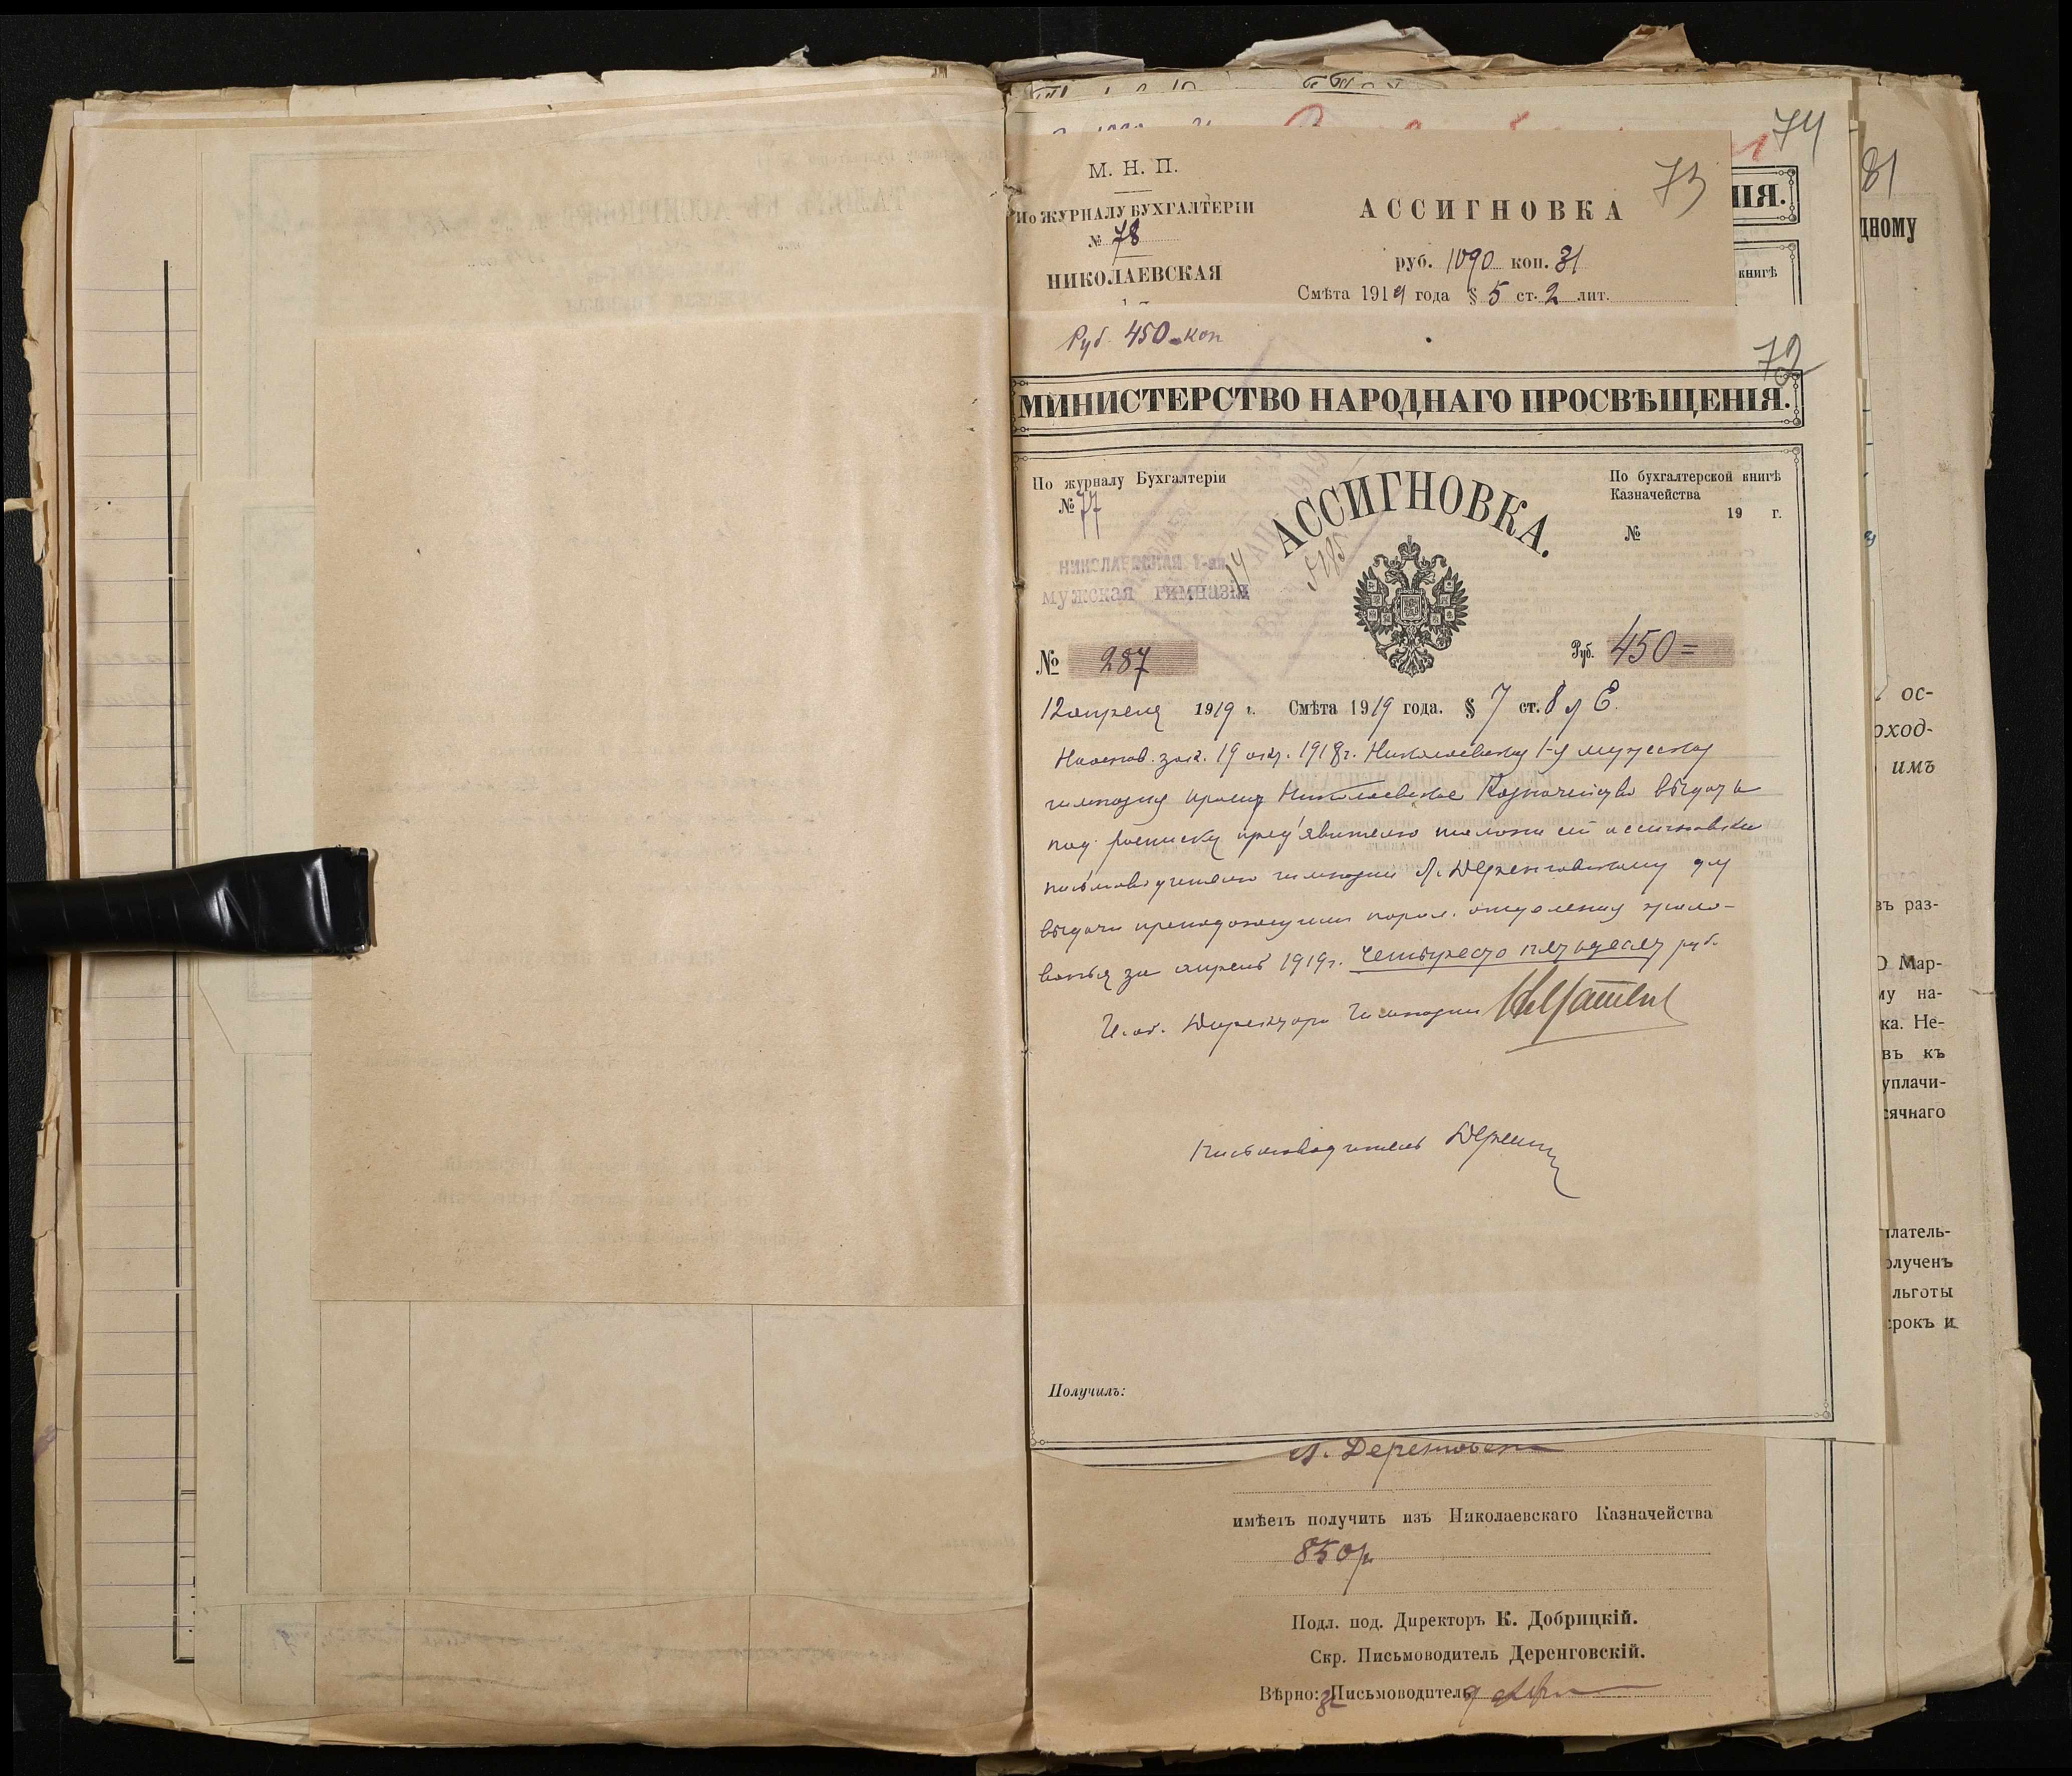 74
М. Н. П.
73
По ЖУРНАЛУ БУХГАЛТЕРІИ
АССИГНОВКА
№ 78
НИКОЛАЕВСКАЯ
руб. 1090 коп. 31
Смѣта 1919 года § 5 ст. 2 лит.
ІЯ.
книгѣ
81
дному
Руб 450 - коп
72
МИНИСТЕРСТВО НАРОДНАГО ПРОСВѢЩЕНІЯ.
По журналу Бухгалтеріи
№ 77
АССИГНОВКА.
По бухгалтерской книгѣ
Казначейства
19 г.
№
НИКОЛАЕВСКАЯ 1-ая
мужская гимназія
№ 287
Руб. 450 =
12 апреля 1919 г. Смѣта 1919 года. § 7 ст. 8 л Е.
На основ. зак. 19 окт. 1918 г. Николаевская 1-я мужская
гимназия просит Николаевское Казначейство выдать
под росписку пред'явителю талона сей ассигновки
письмоводителю гимназии Л. Деренговскому для
выдачи преподающим парал. отделения жало-
ванья за апрель 1919 г. четыреста пятьдесят руб.
И. об. Директора Гимназии
Письмоводитель
Получилъ:
Л. Деренговск
имѣетъ получить изъ Николаевскаго Казначейства
850 р
Подл. под. Директоръ К. Добрицкій.
Скр. Письмоводитель Деренговскій.
Вѣрно: Письмоводитель
ос-
оход-
имъ
въ раз-
О Мар-
му на-
ка. Не-
въ къ
уплачи-
сячнаго
платель-
олученъ
льготы
срокъ и